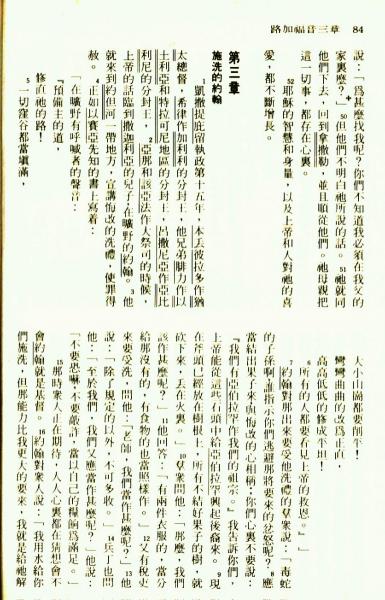 路加福音三章 84
說：「爲甚麼找我呢？你們不知道我必須在我父的
家裏麼？」50但他們不明白祂所說的話。51祂就同
他們下去，回到拿撒勒，並且順從他們。祂母親把
這一切事，都存在心裏。
52耶穌的智慧和身量，以及上帝和人對祂的喜
愛，都不斷增長。
第三章
施洗的約翰
1凱撒提庇留執政第十五年，本丟彼拉多作猶
太總督，希律作加利利的分封王，他兄弟腓力作以
土利亞和特拉可尼地區的分封王，呂撒尼亞作亞比
利尼的分封王，2亞那和該亞法作大祭司的時候，
上帝的話臨到撒迦利亞的兒子，在曠野的約翰。3他
就來到約但河一帶地方，宣講悔改的洗禮，使罪得
赦。4正如以賽亞先知的書上寫着：
「在曠野有呼喊者的聲音：
『預備主的道，
修直祂的路！
5一切窪谷都當填滿，
大小山岡都要削平！
彎彎曲曲的改爲正直，
高高低低的修成平坦！
6所有的人都要看見上帝的救恩。』」
7約翰對那出來要受他洗禮的羣衆說：「毒蛇
的子孫啊！誰指示你們逃避那將要來的忿怒呢？8應
當結出果子來與悔改的心相稱。你們心裏不要說：
『我們有亞伯拉罕作我們的祖宗。』我告訴你們，
上帝能從這些石頭中給亞伯拉罕興起後裔來。9現
在斧頭已經放在樹根上，所有不結好果子的樹，就
砍下來，丟在火裏。」10羣衆問他：「那麼，我們
該作甚麼呢？」11他回答：「有兩件衣服的，當分
給那沒有的，有食物的也當照樣作。」12又有稅吏
來要受洗，問他：「老師，我們當作甚麼呢？」13他
說：「除了規定的以外，不可多收。」14兵丁也問
他：「至於我們，我們又應當作甚麼呢？」他說：
「不要恐嚇，不要敲詐，當以自己的糧餉爲滿足。」
15那時衆人正在期待，人人心裏都在猜想會不
會約翰就是基督。16約翰對衆人說：「我用水給你
們施洗，但那能力比我更大的要來，我就是給祂解